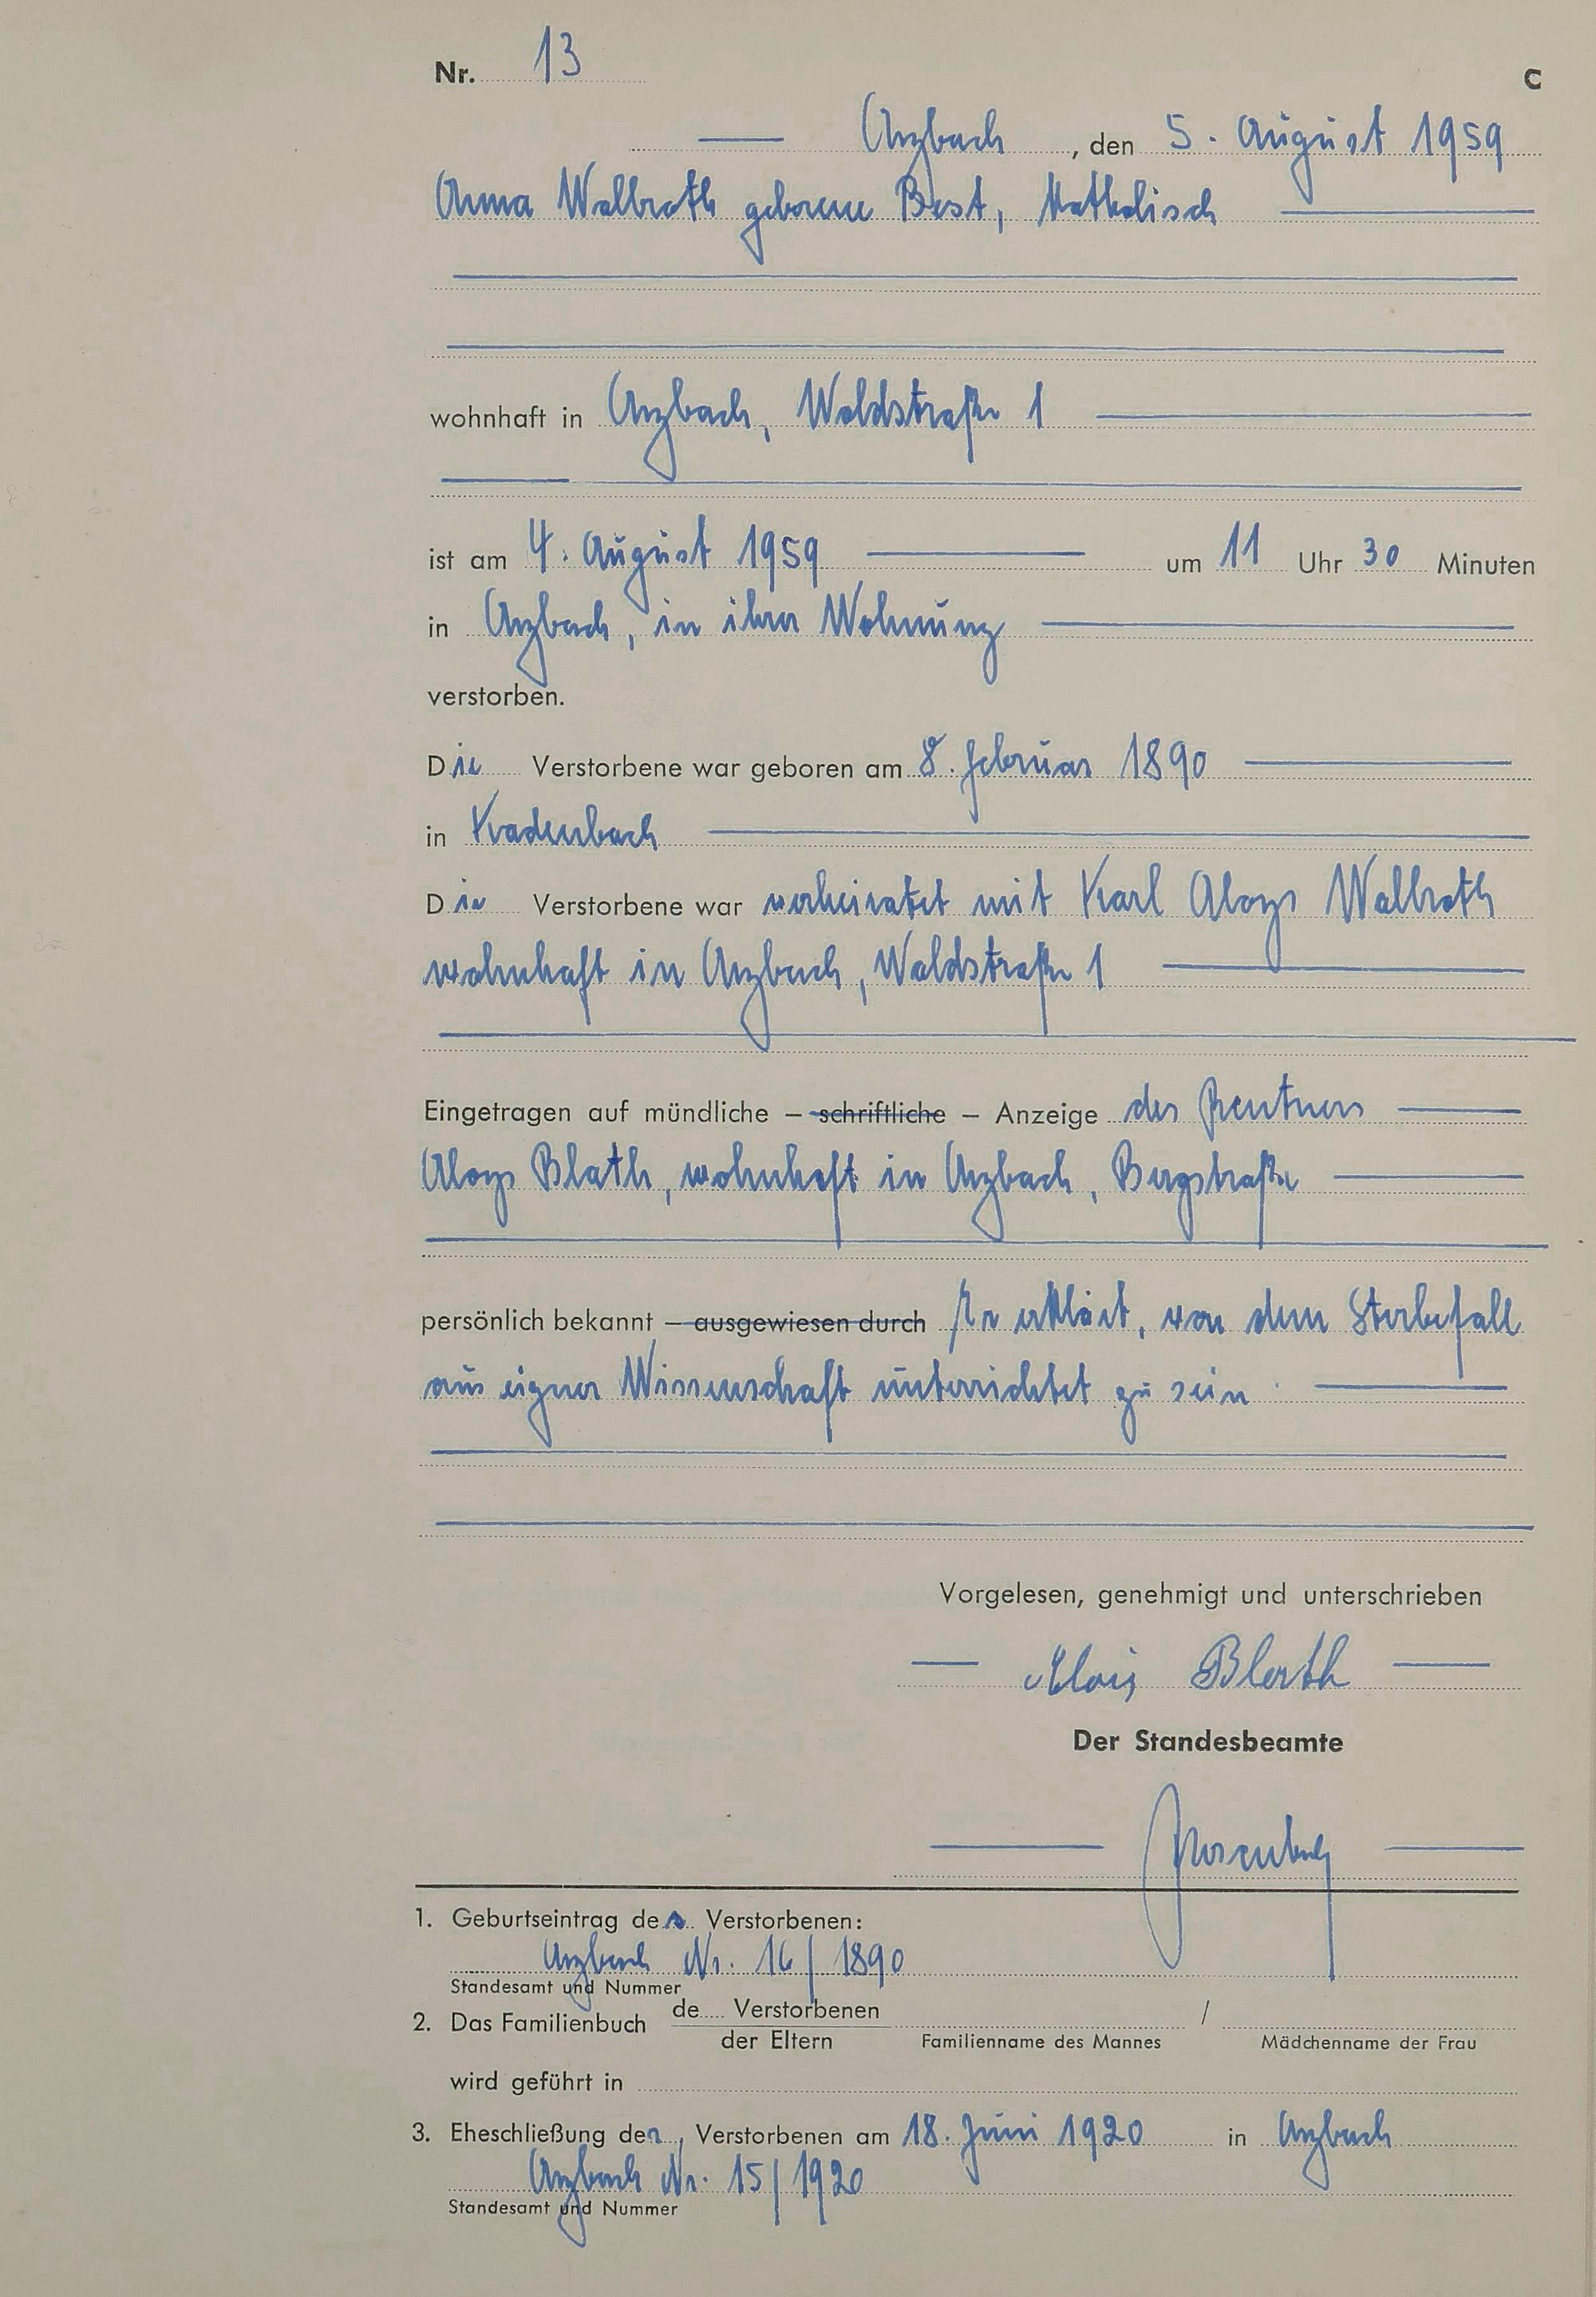 Nr. 13
C
Arzbach, den 5. August 1959
Anna Wallroth geborene Best, katholisch
wohnhaft in Arzbach, Waldstraße 1
ist am 4. August 1959 um 11 Uhr 30 Minuten
in Arzbach, in ihrer Wohnung
verstorben.
Die Verstorbene war geboren am 8. Februar 1890
in Kadenbach
Die Verstorbene war verheiratet mit Karl Aloys Wallroth
wohnhaft in Arzbach, Waldstraße 1
Eingetragen auf mündliche – schriftliche – Anzeige des Rentners
Aloys Blath, wohnhaft in Arzbach, Bergstraße
persönlich bekannt – ausgewiesen durch Er erklärt, von dem Sterbefall
aus eigner Wissenschaft unterrichtet zu sein.
Vorgelesen, genehmigt und unterschrieben
Alois Blath
Der Standesbeamte
1. Geburtseintrag der Verstorbenen:
Arzbach Nr. 16/1890
Standesamt und Nummer
2. Das Familienbuch de Verstorbenen /
der Eltern Familienname des Mannes Mädchenname der Frau
wird geführt in
3. Eheschließung der Verstorbenen am 18. Juni 1920 in Arzbach
Arzbach Nr. 15/1920
Standesamt und Nummer